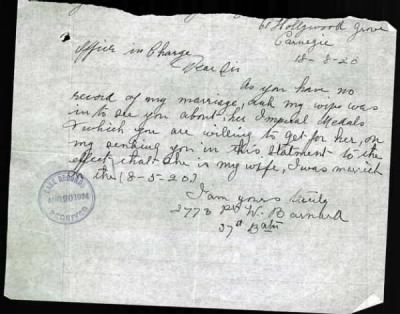 61 Hollywood Grove
Carnegie
18-8-20
Officer in Charge
Dear Sir
As you have no
record of my marriage, and my wife was
in to see you about, her Imperial Medals
which you are willing to get for her, on
my sending you in this statment to the
effect that she is my wife, I was married
on the (18-5-20)
I am yours truly
2772 Pt W. Barnard
37th Batn
BASE RECORDS
RECEIVED